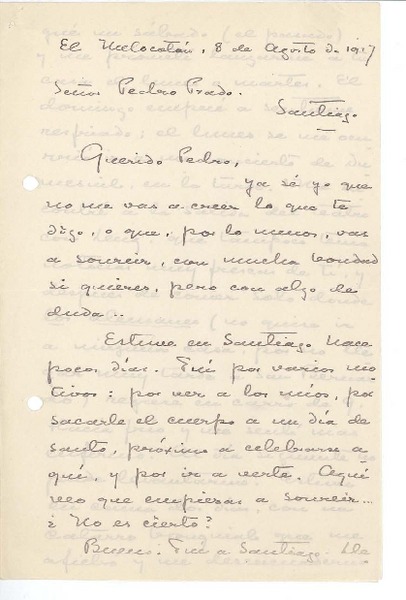 El Melocotón, 8 de Agosto de 1917
Señor Pedro Prado.
Santiago
Querido Pedro,
ya sé yo que
no me vas a creer lo que te
digo, o que, por lo menos, vas
a sonreir, con mucha bondad
si quieres, pero con algo de
duda..
Estuve en Santiago hace
pocos días. Fuí por varios mo
tivos: por ver a los míos, por
sacarle el cuerpo a un día de
santo, próximo a celebrarse a
quí, y por ir a verte. Aquí
veo que empiezas a sonreir...
¿No es cierto?
Bueno. Fuí a Santiago. Lle